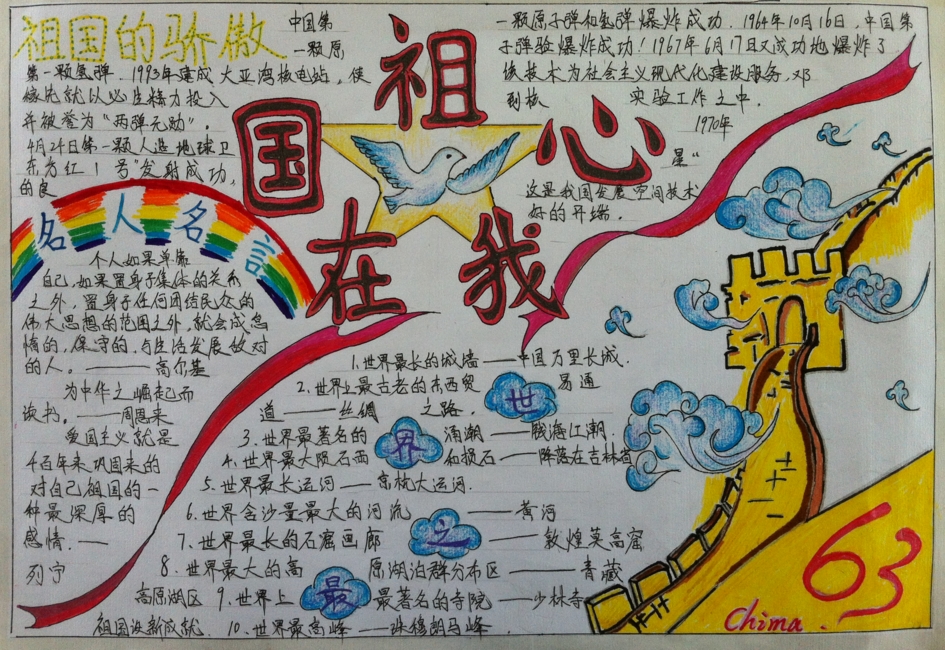 祖国的骄傲
中国第
一颗原
第一颗氢弹．1993年建成大亚湾核电站，使
稼先就以必生精力投入
并被誉为“两弹元勋”。
4月24日第一颗人造地球卫
东方红1号"发射成功，
的良
一颗原子弹和氢弹爆炸成功．1964年10月16日，中国第
子弹验爆炸成功！1967年6月17日又成功地爆炸了
该技术为社会主义现代化建设服务，邓
到核
实验工作之中．
1970年
星“
这是我国发展空间技术
好的开端．
祖国在我心
名人名言
个人如果单靠
自己，如果置身于集体的关系
之外，置身于任何团结民众的
伟大思想的范围之外，就会成怠
惰的，保守的，与生活发展敌对
的人。———高尔基
为中华之崛起而
读书。——周恩来
爱国主义就是
千百年来巩固来的
对自己祖国的一
种最深厚的
感情．—
列宁
世界之最
1.世界最长的城墙——中国万里长城．
2.世界上最古老的东西贸易通
道——丝绸之路．
3.世界最著名的涌潮——钱海江潮
4.世界最大陨石雨和损石——降落在吉林省
5.世界最长运河——京杭大运河．
6.世界含沙量最大的河流——黄河
7.世界最长的石窟画廊——敦煌莫高窟
8.世界最大的高原湖泊群分布区——青藏
高原湖区
9.世界上最著名的寺院——少林寺
祖国设新成就．
10.世界最高峰——珠穆朗马峰．
63
Chima.